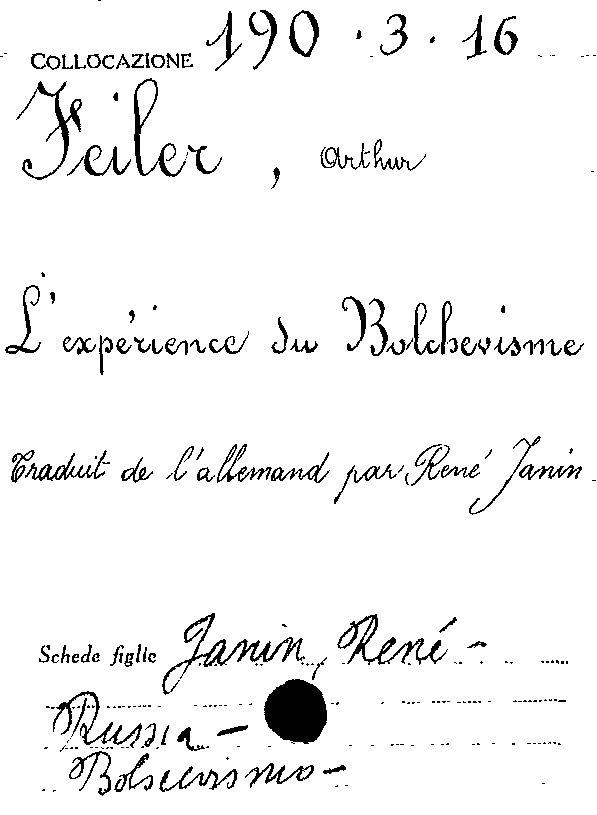 COLLOCAZIONE 190 . 3 . 16
Feiler, Arthur
L'expérience du Bolchevisme
Traduit de l'allemand par René Janin.
Schede figlie Janin, René -
Russia -
Bolscevismo -